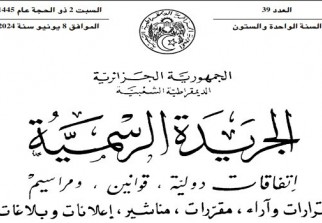 العدد 39
السبت 2 ذو الحجة عام 1445
السنة الواحدة والستون
الموافق 8 يونيو سنة 2024
الجمهورية الجزائرية
الديمقراطية الشعبية
الجريدة الرسمية
اتفاقات دولية ، قوانين ، ومراسيم
قرارات وآراء ، مقررات ، مناشير ، إعلانات وبلاغات